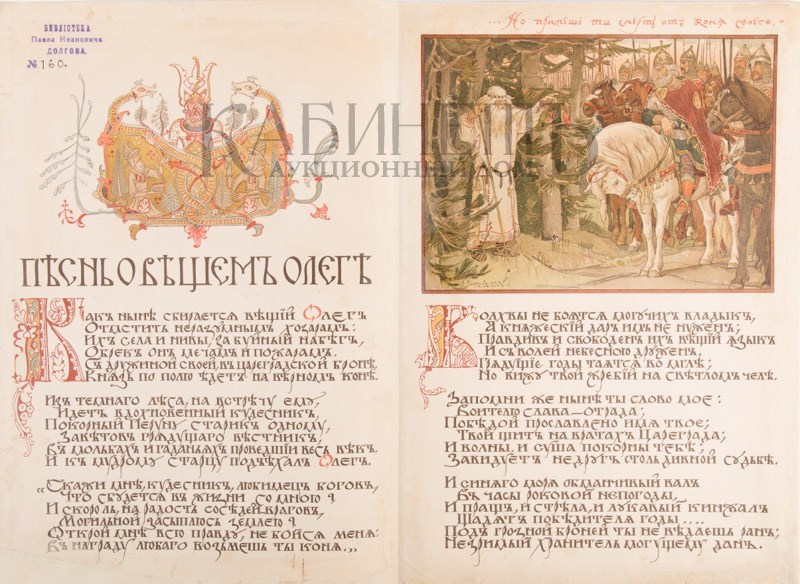 БИБЛІОТЕКА
Павла Ивановича
ДОЛГОВА.
№160.
КАБИНЕТЪ
АУКЦИОННЫЙ ДОМ
ПѢСНЬ О ВѢЩЕМЪ ОЛЕГѢ
Какъ нынѣ сбирается вѣщій Олегъ
Отмстить неразумнымъ хозарамъ:
Ихъ села и нивы, за буйный набѣгъ,
Обрекъ онъ мечамъ и пожарамъ.
Съ дружиной своей, въ цареградской бронѣ,
Князь по полю ѣдетъ на вѣрномъ конѣ.
Изъ темнаго лѣса, на встрѣчу ему,
Идетъ вдохновенный кудесникъ,
Покорный Перуну старикъ одному,
Завѣтовъ грядущаго вѣстникъ,
Въ мольбахъ и гаданьяхъ проведшій весь вѣкъ.
И къ мудрому старцу подъѣхалъ Олегъ.
„Скажи мнѣ, кудесникъ, любимецъ боговъ,
Что сбудется въ жизни со мною?
И скоро ль, на радость сосѣдей-враговъ,
Могильной засыплюсь землею?
Открой мнѣ всю правду, не бойся меня:
Въ награду любаго возьмешь ты коня.„
...Но примешь ты смерть отъ коня своего.
Волхвы не боятся могучихъ владыкъ,
А княжескій даръ имъ не нуженъ;
Правдивъ и свободенъ ихъ вѣщій языкъ
И съ волей небесною друженъ.
Грядущіе годы таятся во мглѣ;
Но вижу твой жребій на свѣтломъ челѣ.
Запомни же нынѣ ты слово мое:
Воителю слава — отрада;
Побѣдой прославлено имя твое;
Твой щитъ на вратахъ Цареграда;
И волны и суша покорны тебѣ;
Завидуетъ недругъ столь дивной судьбѣ.
И синяго моря обманчивый валъ
Въ часы роковой непогоды,
И пращъ, и стрѣла, и лукавый кинжалъ
Щадятъ побѣдителя годы....
Подъ грозной броней ты не вѣдаешь ранъ;
Незримый хранитель могущему данъ.